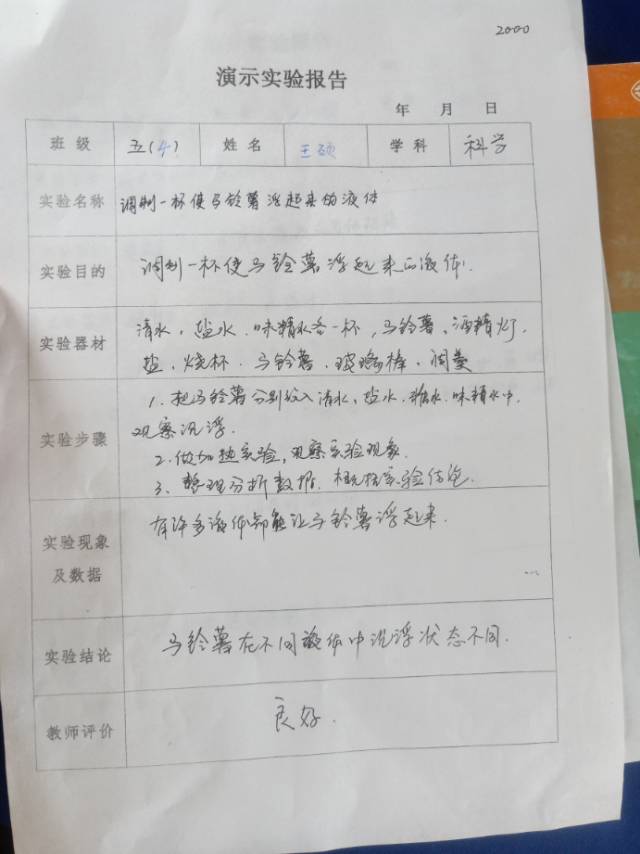 2000
演示实验报告
年 月 日
班级 五(4) 姓名 王硕 学科 科学
实验名称 调制一杯使马铃薯浮起来的液体
实验目的 调制一杯使马铃薯浮起来的液体.
实验器材 清水, 盐水.味精水各一杯,马铃薯、酒精灯.
盐.烧杯.马铃薯.玻璃棒.汤羹
实验步骤 1.把马铃薯分别放入清水,盐水.糖水.味精水中.
观察沉浮.
2.做加热实验,观察实验现象.
3、整理分析数据.概括实验结论.
实验现象及数据 有许多液体都能让马铃薯浮起来.
实验结论 马铃薯在不同液体中沉浮状态不同.
教师评价 良好.